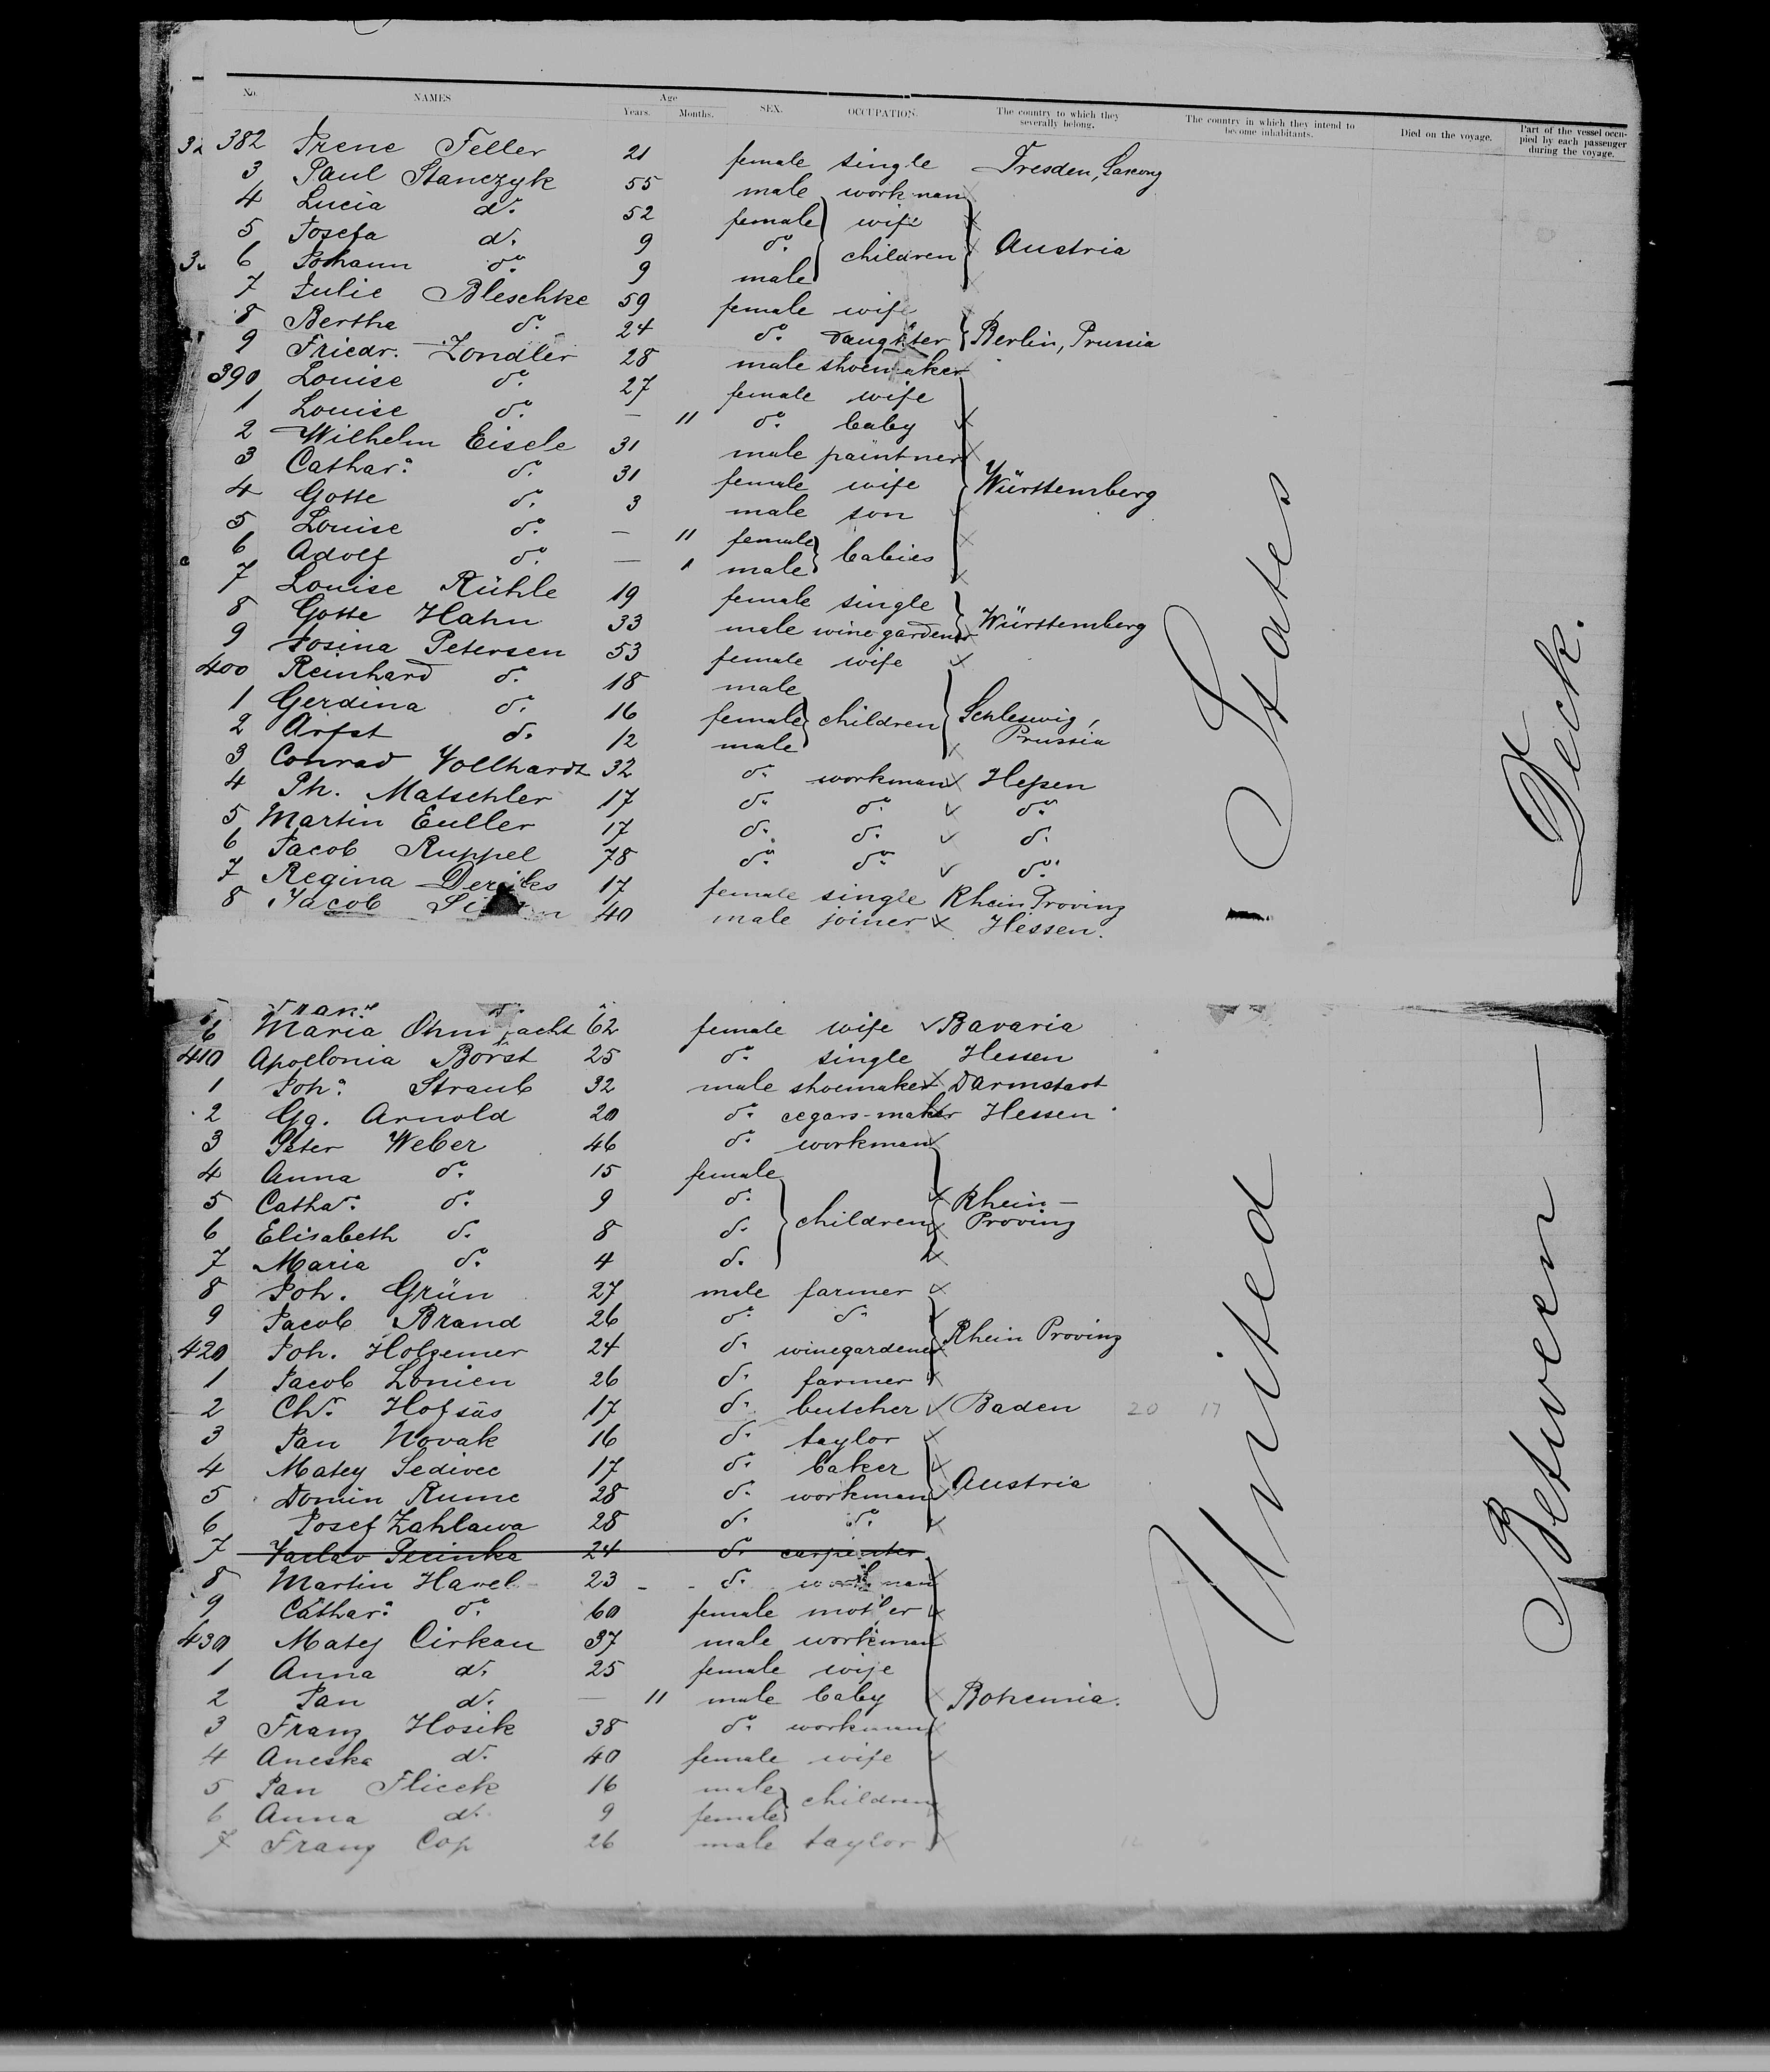 No. NAMES Age Years. Months. SEX. OCCUPATION. The country to which they severally belong. The country in which they intend to become inhabitants. Died on the voyage. Part of the vessel occupied by each passenger during the voyage.
382 Irene Feller 21 female single Dresden, Saxony
3 Paul Stanczyk 55 male workman
4 Lucia do. 52 female wife
5 Josefa do. 9 do. children Austria
6 Johann do. 9 male
7 Julie Bleschke 59 female wife
8 Bertha do. 24 do. daughter Berlin, Prussia
9 Friedr. Zondler 28 male shoemaker
390 Louise do. 27 female wife
1 Louise do. — 11 do. baby
2 Wilhelm Eisele 31 male paintner
3 Cathar. do. 31 female wife Württemberg
4 Gotte do. 3 male son
5 Louise do. — 11 female babies
6 Adolf do. — 1 male
7 Louise Rühle 19 female single
8 Gotte Hahn 33 male winegardener Württemberg
9 Josina Petersen 53 female wife
400 Reinhard do. 18 male
1 Gerdina do. 16 female children Schleswig, Prussia
2 Arfst do. 12 male
3 Conrad Vollhardt 32 do. workman Hessen
4 Ph. Matschler 17 do. do. do.
5 Martin Euller 17 do. do. do.
6 Jacob Ruppel 78 do. do. do.
7 Regina 17 female single Rhein Proving
8 Jacob 40 male joiner Hessen.
Maria 62 female wife Bavaria
410 Apollonia Borst 25 do. single Hessen
1 Joh. Straub 32 male shoemaker Darmstadt
2 Gg. Arnold 20 do. cegars-maker Hessen
3 Peter Weber 46 do. workman
4 Anna do. 15 female
5 Cathar. do. 9 do. children Rhein-Proving
6 Elisabeth do. 8 do.
7 Maria do. 4 do.
8 Joh. Grün 27 male farmer
9 Jacob Brand 26 do. do. Rhein Proving
420 Joh. Holzemer 24 do. winegardener
1 Jacob Lonien 26 do. farmer
2 Chr. Hofsäs 17 do. butcher Baden 20 17
3 Jan Novak 16 do. taylor
4 Matej Sedivec 17 do. baker Austria
5 Domin Rume 28 do. workman
6 Josef Zahlawa 28 do. do.
7 Vaclav Pecinka 24 do. carpenter
8 Martin Havel 23 do. workman
9 Cathar. do. 60 female mother
430 Matej Cirkan 37 male workman
1 Anna do. 25 female wife
2 Jan do. — 11 male baby Bohemia.
3 Franz Hosik 38 do. workman
4 Aneska do. 40 female wife
5 Jan Flicek 16 male children
6 Anna do. 9 female
7 Franz Cop 26 male taylor
United States
Between — Deck.